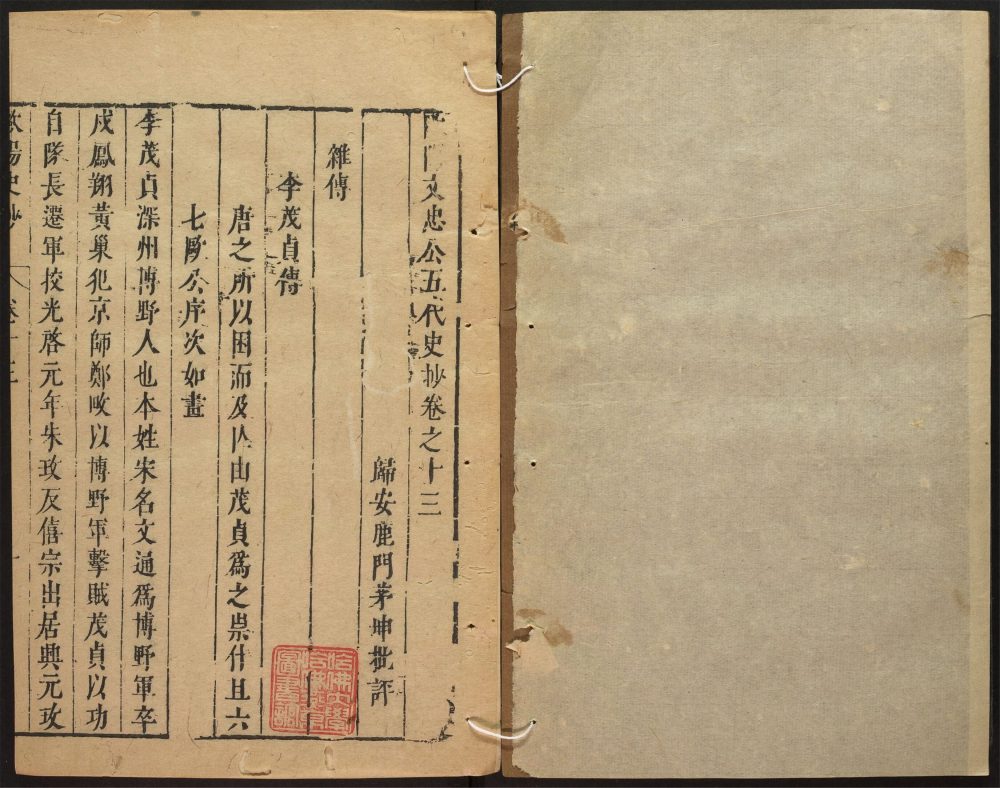 文忠公五代史抄卷之十三
歸安鹿門茅坤批評
雜傳
李茂貞傳
唐之所以困而及亡由茂貞爲之祟什且六
七歐公序次如畫
李茂貞深州博野人也本姓宋名文通爲博野軍卒
戍鳳翔黃巢犯京師鄭畋以博野軍擊賊茂貞以功
自隊長遷軍挍光啓元年朱玫反僖宗出居興元玫
史抄
哈佛大學
哈佛燕京
圖書館